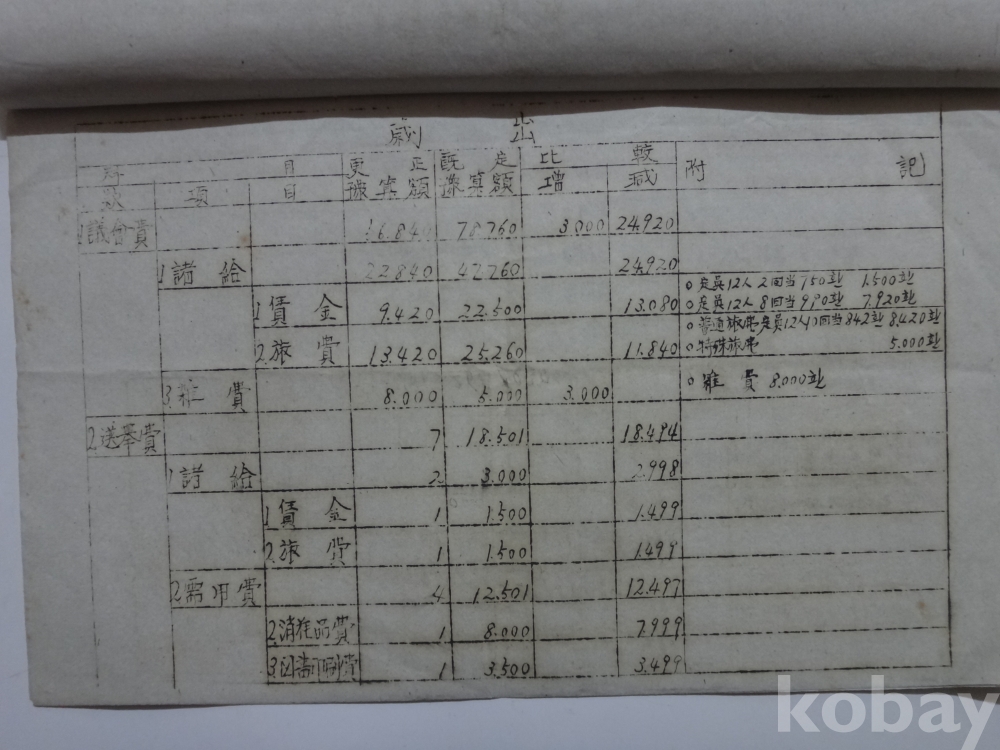 歲 出
科 目 更正 既定 比較 附記
款 項 目 豫算額 豫算額 增 減
1議會費 78.760 3.000 24.920
1諸給 22.840 47.760 24.920
1賃金 9.420 22.500 13.080 ○定員12人2回当750화 1.500화
○定員12人8回当990화 7.920화
2.旅費 13.420 25.260 11.840 ○普通旅費定員12人10回当842화 8.420화
○特殊旅費 5.000화
3.雜費 8.000 5.000 3.000 ○雜費 8.000화
2.選擧費 7 18.501 18.494
1諸給 2 3.000 2.998
1.賃金 1 1.500 1.499
2.旅費 1 1.500 1.499
2.需用費 4 12.501 12.497
2.消耗品費 1 8.000 7.999
3. 1 3.500 3.499
kobay